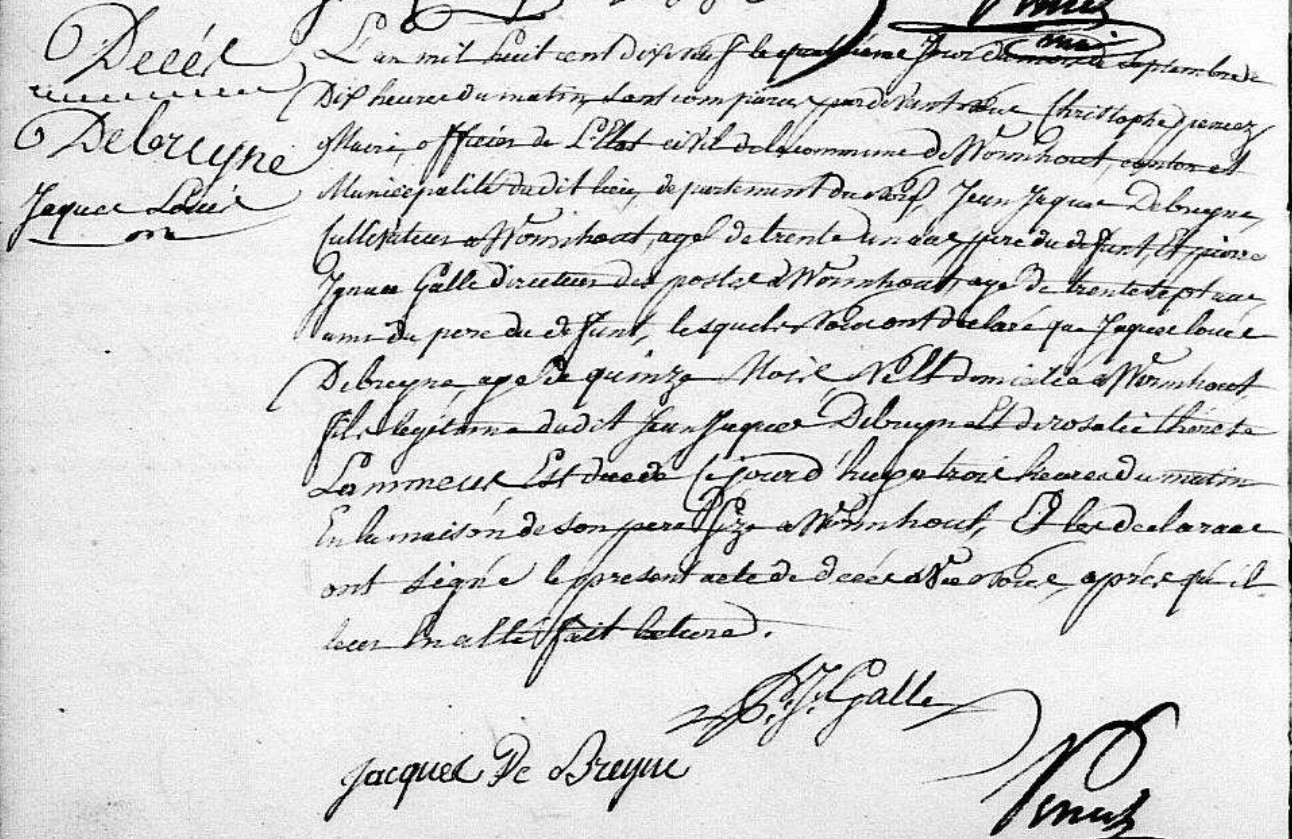 Décés
Debreyne
Jaques Louis
L'an mil huit cent dix neuf le quatrième Jour du mois de septembre a
Dix heures du matin, sont comparus pardevant nous Christophe
Maire, officier de L'Etat civil de la commune de Wormhout, canton et
Municipalité dudit lieu, departement du Nord, Jean Jaques Debreyne,
Cultivateur a Wormhout, agé de trente un ans, pere du defunt, Et pierre
Ignace Galle directeur des postes a Wormhout, agé de trente sept ans,
ami du pere du defunt, lesquels Nous ont declaré que Jaques Louis
Debreyne agé de quinze Mois, Né Et domicilié a Wormhout,
fils legitime dudit Jean Jaques Debreyne Et de rosalie thérese
Lammeus Est decedé Cejourd'huy a trois heures du matin
En la maison de son pere size a Wormhout, Et les declarans
ont signé le present acte de décés avec Nous, aprés qu'il
leur En a Eté fait lecture.
P. J. Galle
Jacques De Breyne